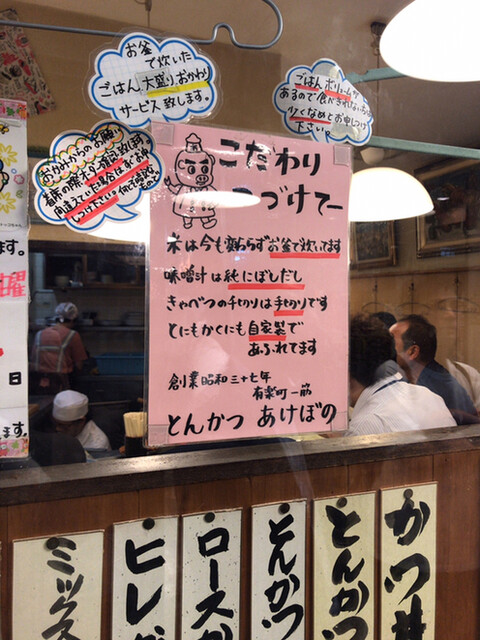 お釜
で炊いた
ごはん、大盛り、おかわり
サービス致します。
ごはん ボリュームが
あるので食べきれない方は
少くなめとお申しつけ
下さい。
おかみからのお願い
こだわり
つづけてー
米は今も変わらずお釜で炊いてます
味噌汁は純にぼしだし
きゃべつの千切りは手切りです
とにもかくにも自家製で
あふれてます
創業昭和三十七年
有楽町一筋
とんかつ あけぼの
ます。
曜
日
ます。
ミックス
ヒレ
ロースか
とんかつ
とんかつ
かつ丼